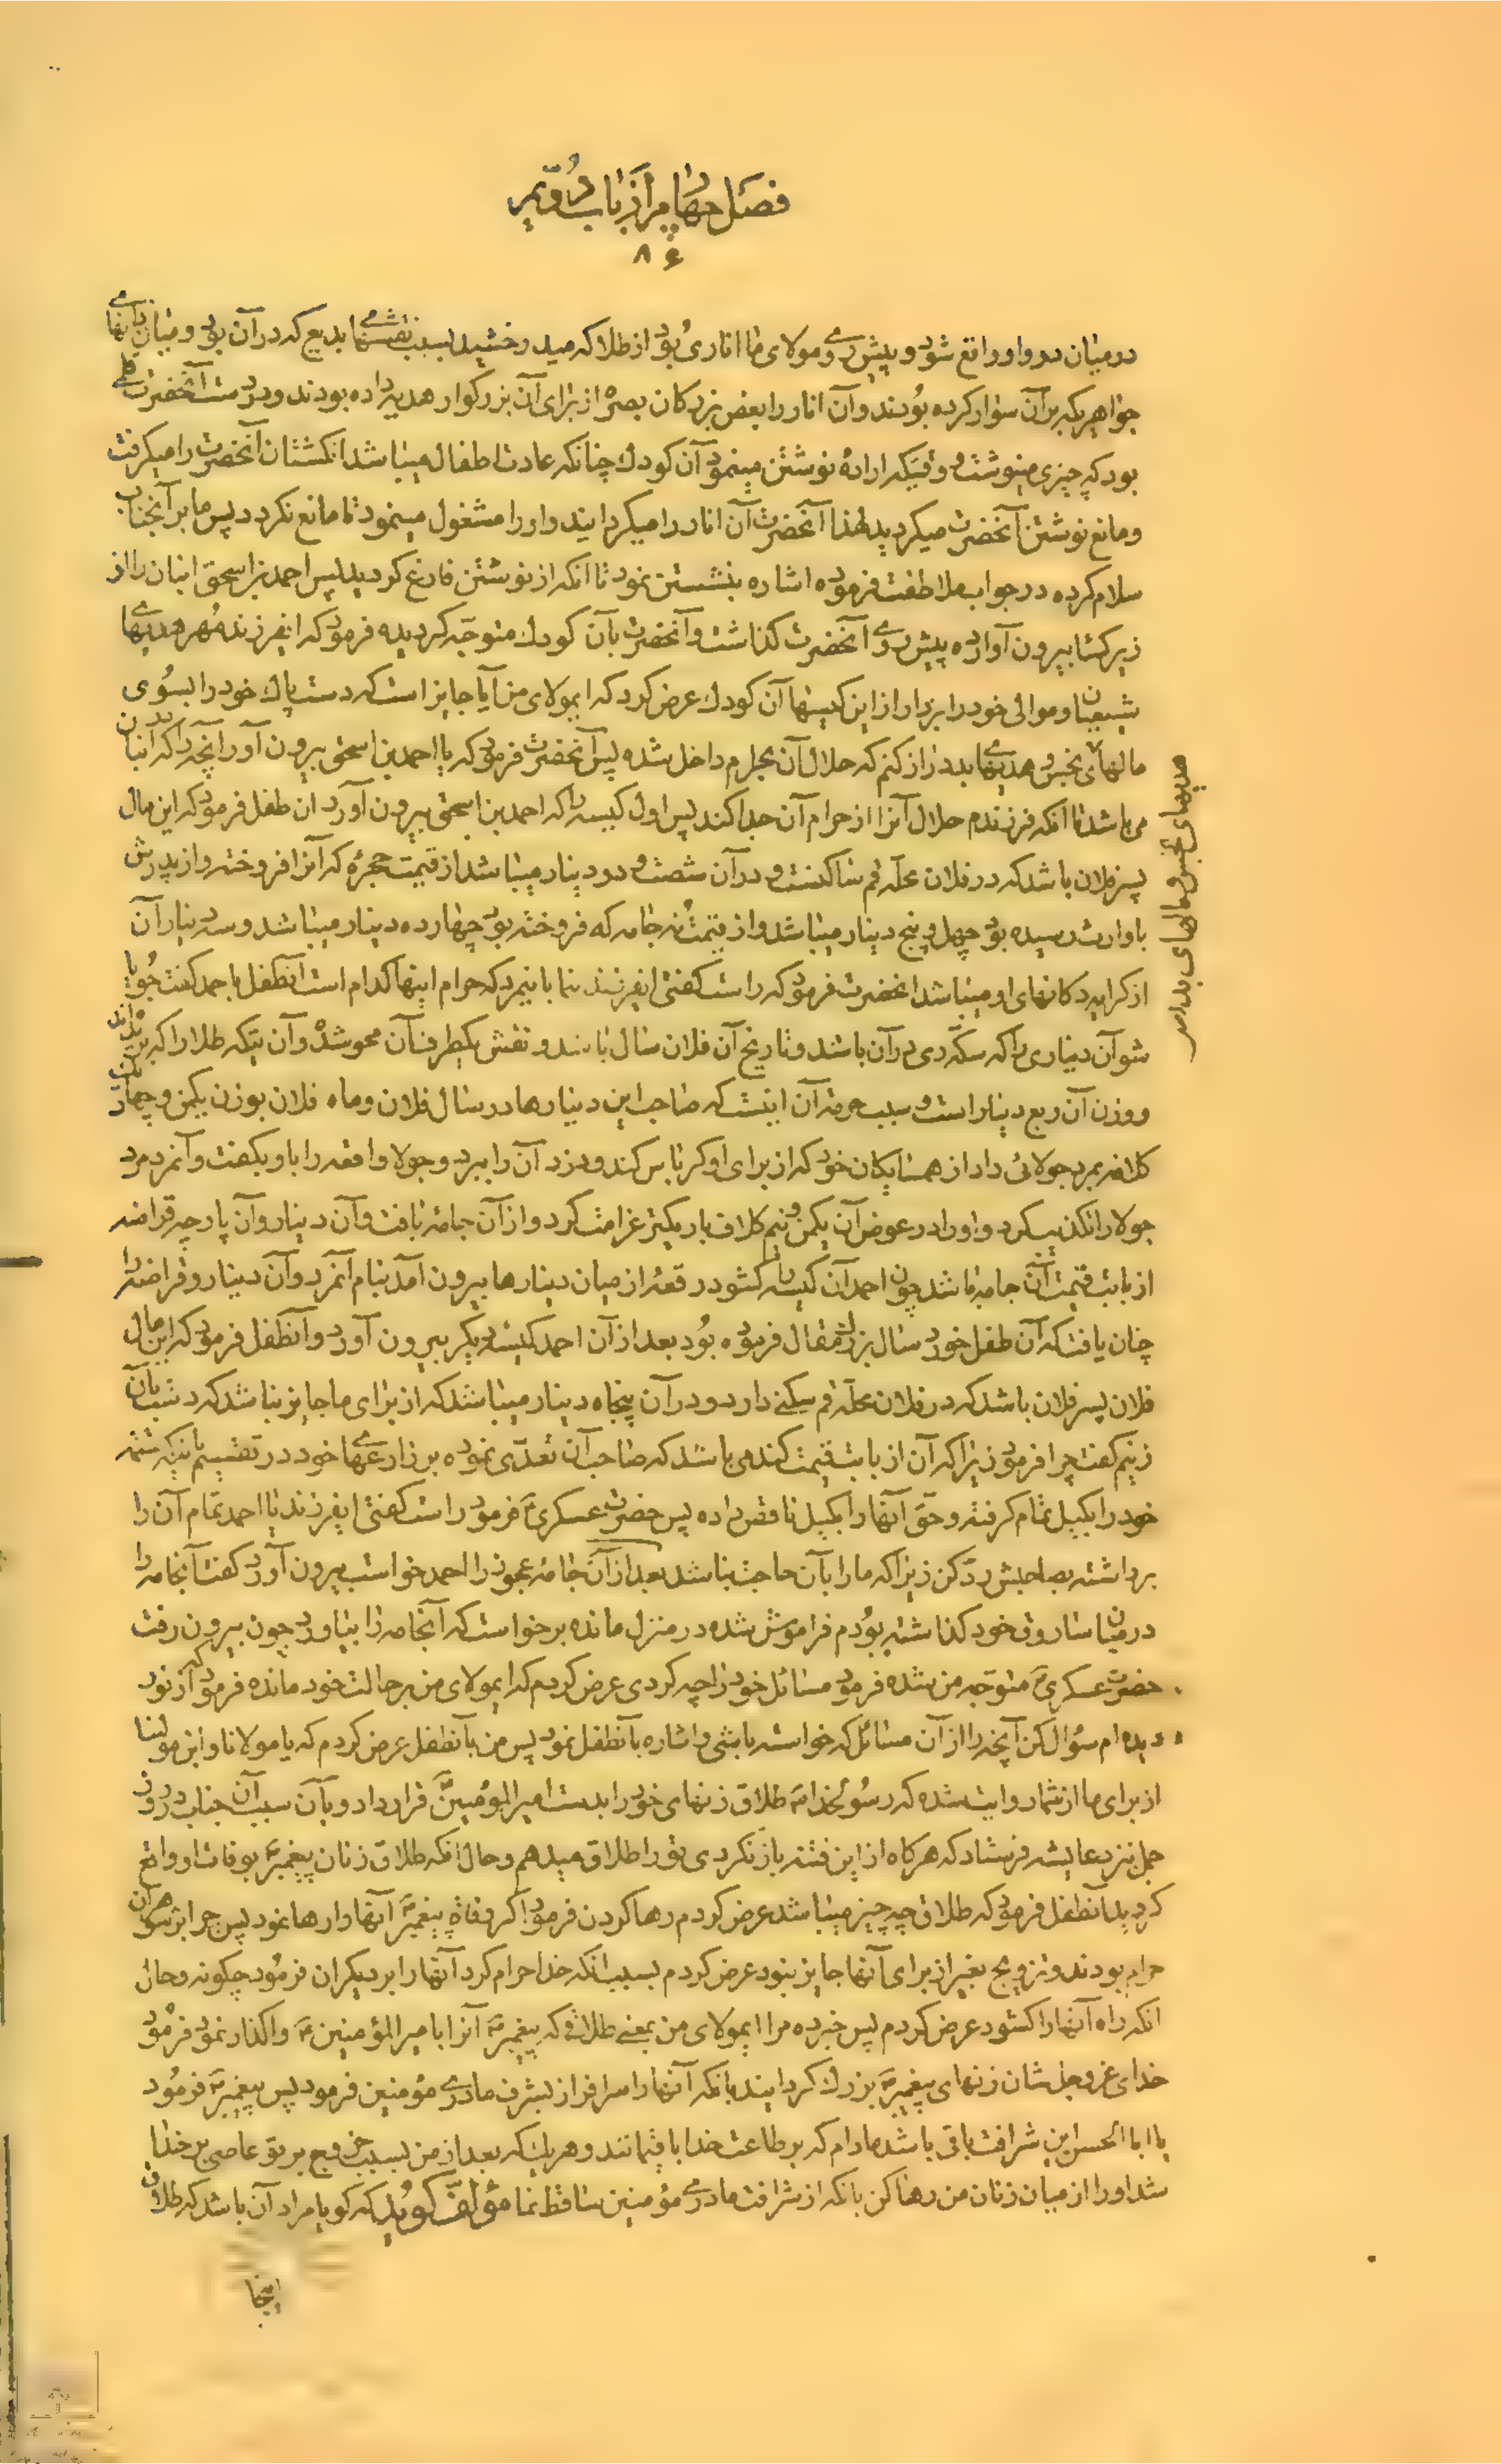 فصل چهارم از باب دویم
۸۶
در میان دو واو واقع شود و پیش روی مولای ما اناری بود از طلا که میدرخشید بسبب نقشهای بدیع که در آن بود و میان آنها
جواهر یکه بر آن سوار کرده بودند و آن انار را بعض بزرکان بصره از برای آن بزرکوار هدیه داده بودند و در دست آنحضرت قلمی
بود که چیزی مینوشت و وقتیکه اراده نوشتن مینمود آن کودک چنانکه عادت اطفال میباشد انکشتان آنحضرت را میکرفت
و مانع نوشتن آنحضرت میکردید لهذا آنحضرت آن انار را میکردانید و او را مشغول مینمود تا مانع نکردد پس ما بر آنجناب
سلام کرده در جواب ملاطفت فرموده اشاره بنشستن نمود تا انکه از نوشتن فارغ کردید پس احمد بن اسحق انبان را از
زیر کسا بیرون آورده پیش روی آنحضرت کذاشت و آنحضرت بآن کودک متوجه کردیده فرمود که ایفرزند مهر هدیهای
شیعیان و موالی خود را بردار از این کیسها آن کودک عرض کرد که ایمولای من آیا جایز است که دست پاک خود را بسوی
مالهای نجس و هدیهای بد دراز کنم که حلال آن بحرام داخل شده پس آنحضرت فرمود که یا احمد بن اسحق بیرون آور آنچه را که در انبان
می باشد تا انکه فرزندم حلال آنرا از حرام آن جدا کند پس اول کیسه را که احمد بن اسحق بیرون آورد آن طفل فرمود که این مال
پسر فلان باشد که در فلان محله قم ساکنست و در آن شصت و دو دینار میباشد از قیمت حجره که آنرا فروخته و از پدرش
باو ارث رسیده بود چهل و پنج دینار میباشد و از قیمت نه جامه که فروخته بود چهارده دینار میباشد و سه دینار آن
از کرایه دکانهای او میباشد آنحضرت فرمود که راست کفتی ایفرزند بنما باینمرد که حرام اینها کدام است آنطفل باحمد کفت جویا
شو آن دیناری را که سکه ری در آن باشد و تاریخ آن فلان سال باشد و نقش یکطرف آن محو شده و آن تیکه طلا را که
و وزن آن ربع دینار است و سبب حرمت آن اینست که صاحب این دینارها در سال فلان و ماه فلان بوزن یکمن و چهار یک
کلافه بمرد جولائی داد از همسایکان خود که از برای او کرباس کند و دزد آن را ببرد و جولا واقعه را باو بکفت و آنمرد مرد
جولا را تکذیب کرد و او را در عوض آن یکمن و نیم کلاف باریکتر غرامت کرد و از آن جامه بافت و آن دینار و آن پارچه قراضه
از بابت قیمت آن جامه باشد چون احمد آن کیسه را کشود رقعه از میان دینارها بیرون آمد بنام آنمرد و آن دینار و قراضه را
چنان یافت که آن طفل خورد سال بزرک مقال فرموده بود بعد از آن احمد کیسه دیکر بیرون آورد و آنطفل فرمود که این مال
فلان پسر فلان باشد که در فلان محله قم سکنی دارد و در آن پنجاه دینار میباشد که از برای ما جایز نباشد که دست بآن
زنیم کفت چرا فرمود زیرا که آن از بابت قیمت کندمی باشد که صاحب آن تعدی نموده بر زارعهای خود در تقسیم باینکه قسمة
خود را بکیل تمام کرفته و حق آنها را بکیل ناقص داده پس حضرت عسکری ع فرمود راست کفتی ایفرزند یا احمد تمام آن را
برداشته بصاحبش رد کن زیرا که ما را بآن حاجت نباشد بعد از آن جامه عجوز را احمد خواست بیرون آورد کفت آنجامه را
در میان ساروق خود کذاشته بودم فراموش شده در منزل مانده برخواست که آنجامه را بیاورد چون بیرون رفت
حضرت عسکری ع متوجه من شده فرمود مسائل خود را چه کردی عرض کردم که ایمولای من بر حالت خود مانده فرمود که از نور
دیده ام سؤال کن آنچه را از آن مسائل که خواسته باشی و اشاره بآنطفل نمود پس من بآنطفل عرض کردم که یا مولانا و ابن مولینا
از برای ما از شما روایت شده که رسولخدا ص طلاق زنهای خود را بدست امیر المؤمنین ع قرار داد و بآن سبب آن جناب در روز
جمل نزد عایشه فرستاد که هر کاه از این فتنه باز نکردی تو را طلاق میدهم و حال انکه طلاق زنان پیغمبر ص بوفات او واقع
کردید آنطفل فرمود که طلاق چه چیز میباشد عرض کردم رها کردن فرمود اکر وفات پیغمبر ص آنها را رها نمود پس چرا بر شوهران
حرام بودند و تزویج بغیر از برای آنها جایز نبود عرض کردم بسبب انکه خدا حرام کرد آنها را بر دیکران فرمود چکونه و حال
انکه راه آنها را کشود عرض کردم پس خبر ده مرا ایمولای من بمعنی طلاقی که پیغمبر ص آنرا بامیر المؤمنین ع واکذار نمود فرمود
خدای عز و جل شان زنهای پیغمبر ص بزرک کردانید بانکه آنها را سرافراز بشرف مادری مؤمنین فرمود پس پیغمبر ص فرمود
یا ابا الحسن این شرافت باقی باشد مادام که بر طاعت خدا باقیمانند و هر یک که بعد از من بسبب خروج بر تو عاصی بر خدا
شد او را از میان زنان من رها کن بانکه از شرافت مادری مؤمنین ساقط نما مؤلف کوید که کویا مراد آن باشد که طلاق
اینجا
هدیهای نجس و مالهای بد